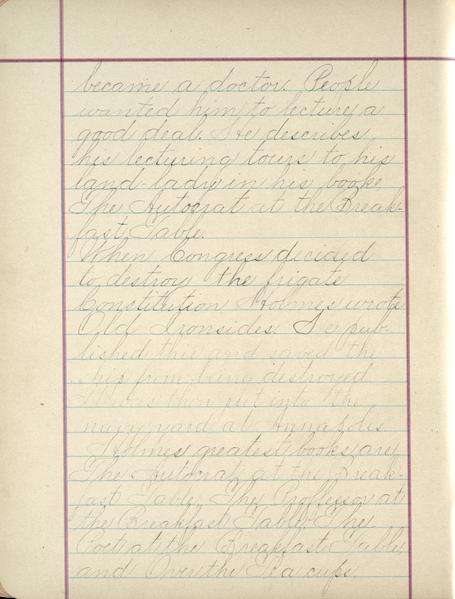 became a doctor. People
wanted him to lecture a
good deal. He describes
his lecturing tours to his
land-lady in his book
The Autocrat at the Break-
fast Table.
When Congress decided
to destroy the frigate
Constitution Holmes wrote
Old Ironsides. He pub-
lished this and saved the
ship from being destroyed.
It was then put into the
navy yard at Annapolis.
Holmes greatest books are
The Autocrat at the Break-
fast Table, The Proffessor at
the Breakfast Table, The
Poet at the Breakfast Table
and Over the Tea cups.